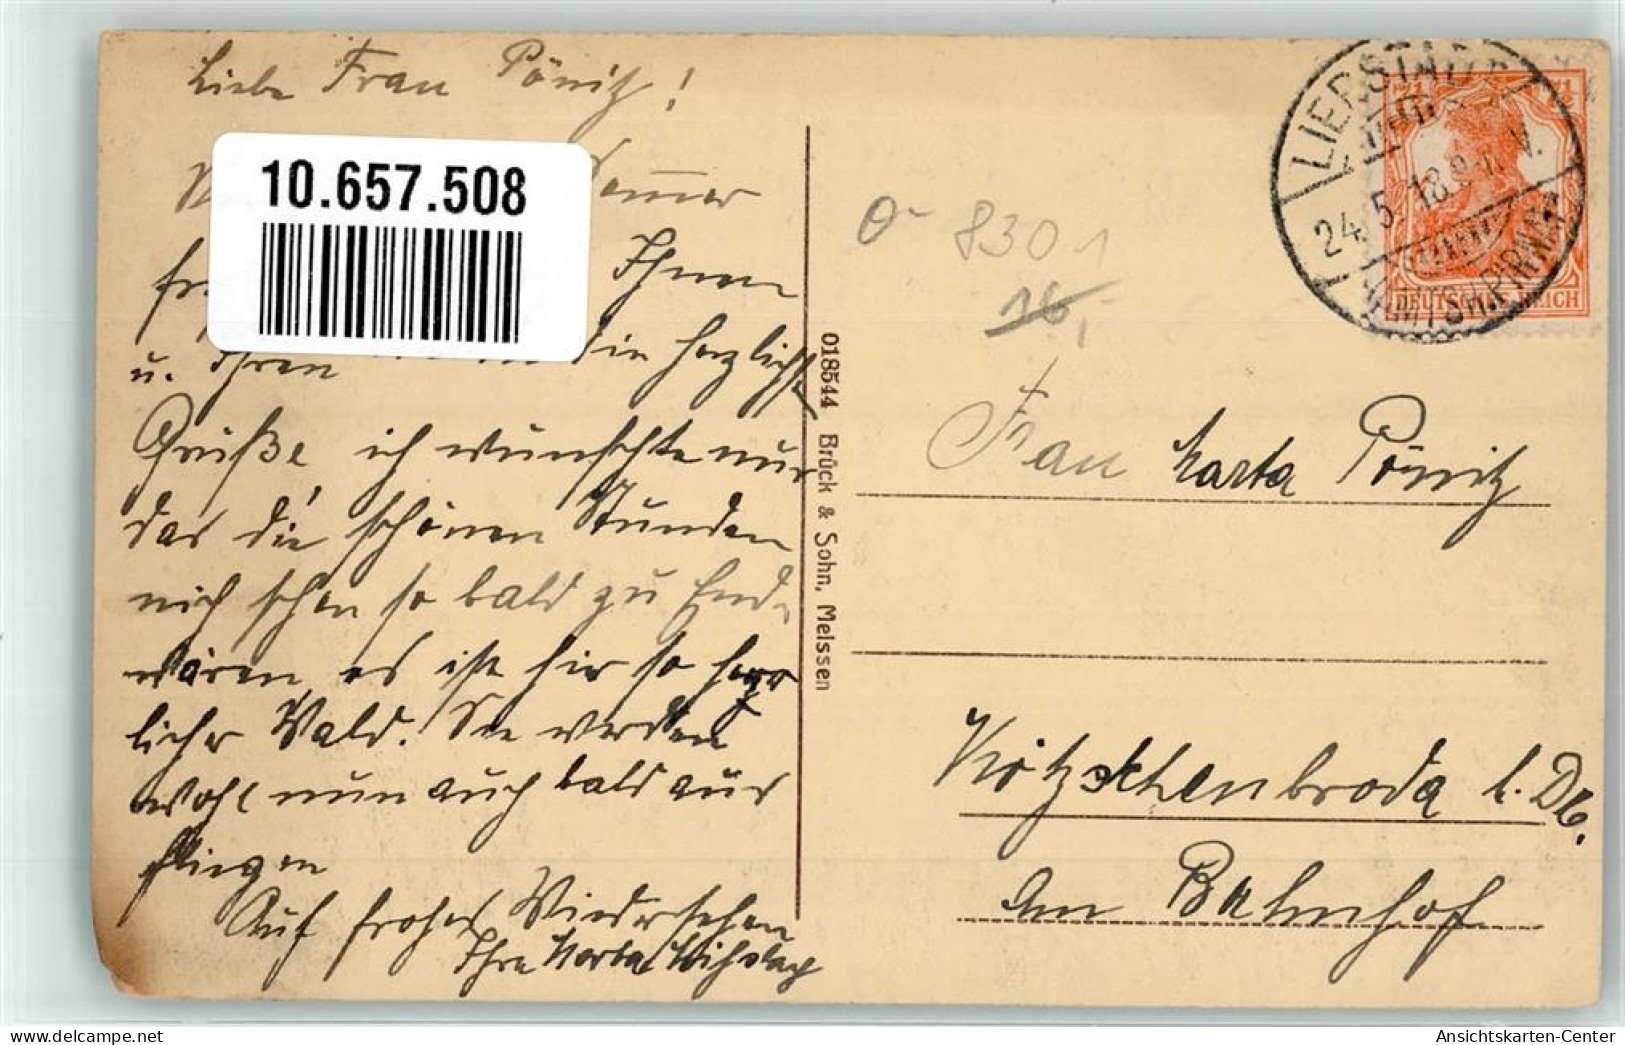 Liebe Frau Pönitz!
10.657.508
Ihnen
u. Ihren die herzlichsten
Grüße, ich wünschte nur
das die schönen Stunden
nich schon so bald zu Ende
wären, es ist hir so herr
licher Wald. Sie werden
wohl nun auch bald aus
fliegen
Auf frohes Wiedersehen
Ihre
018544 Brück & Sohn, Meissen
8301
16,
LIEBSTADT
24.5.18. V.
(AMTSH. PIRNA)
7½ 7½
DEUTSCHES REICH
Frau Marta Pönitz
Kötzschenbroda b. Dr.
Am Bahnhof
delcampe.net
Ansichtskarten-Center